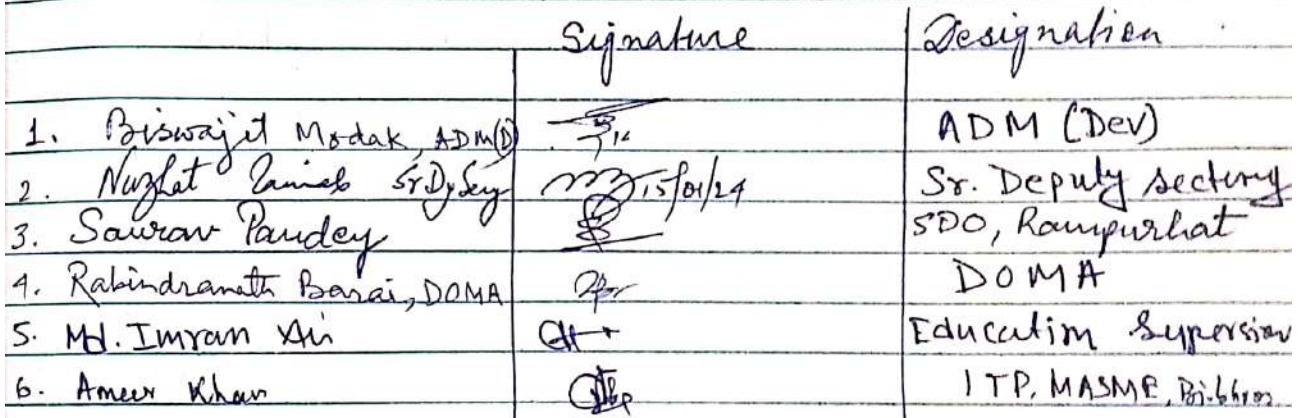 Signature Designation
1. Biswajit Modak, ADM(D) ADM (Dev)
2. Nuzhat Zainab Sr Dy Secy 15/01/24 Sr. Deputy Sectury
3. Saurav Pandey SDO, Rampurhat
4. Rabindranath Barai, DOMA DOMA
5. Md. Imran Education Supersion
6. Ameer Khan ITP, MASME,